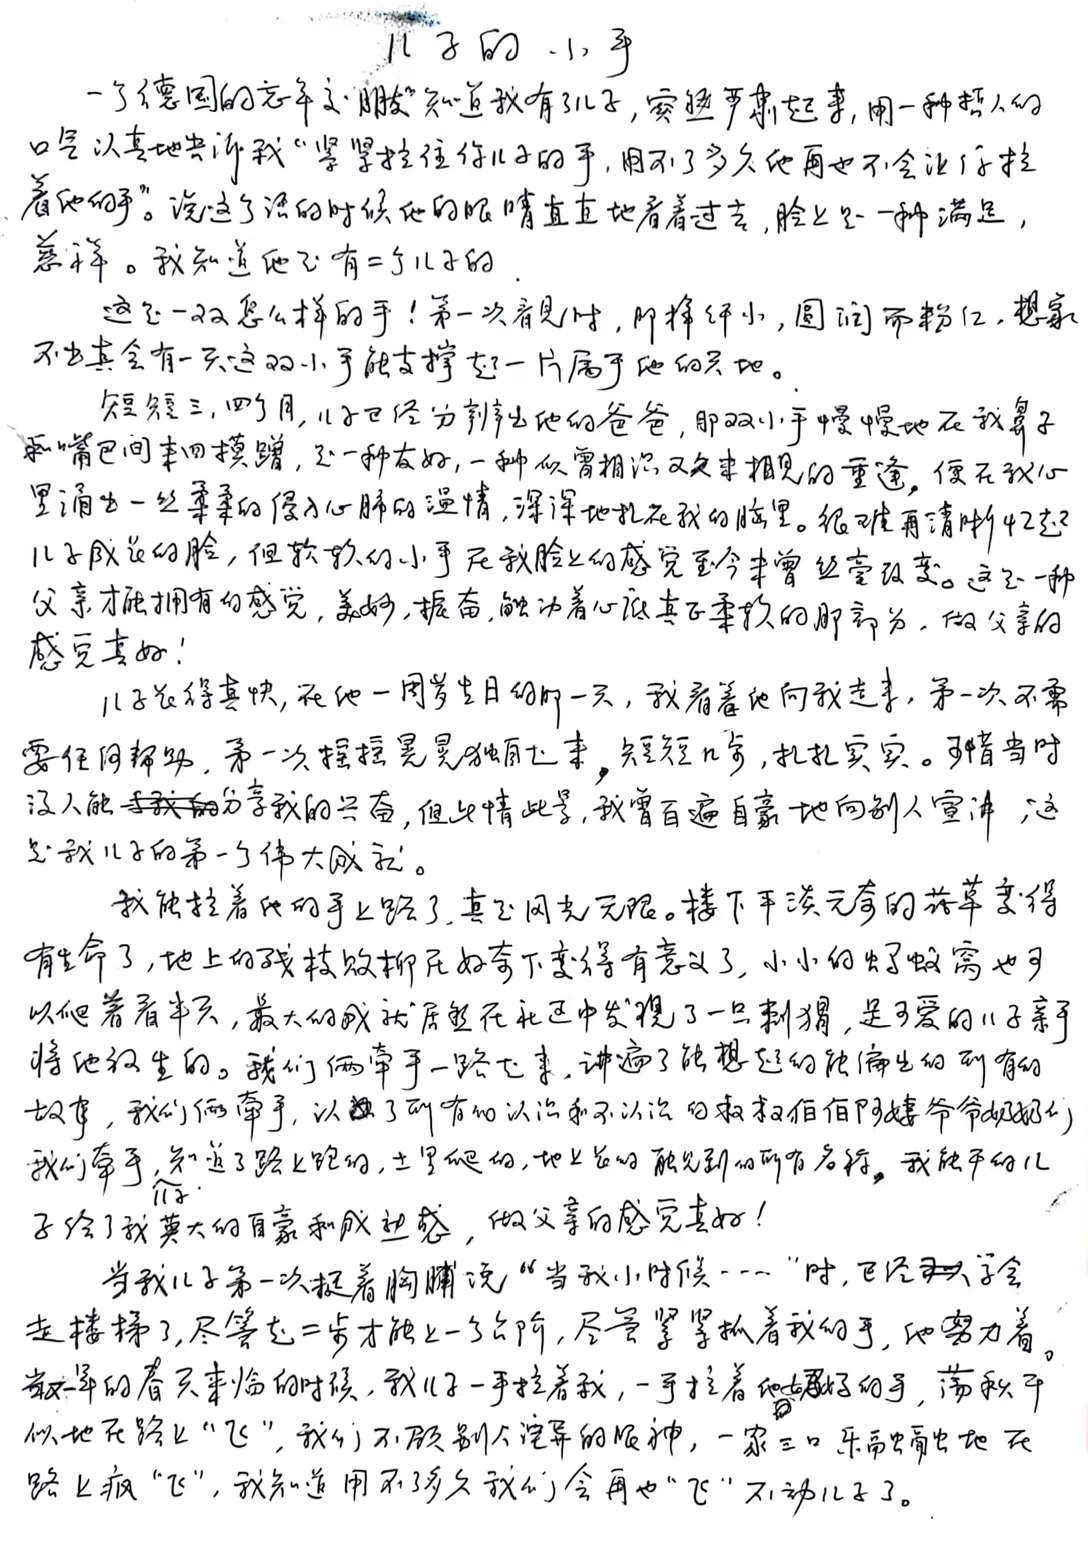 儿子的小手
一个德国的忘年交"朋友"知道我有了儿子，突然严肃起来，用一种哲人的
口气认真地告诉我"紧紧拉住你儿子的手，用不了多久他再也不会让你拉
着他的手"。说这个话的时候他的眼睛直直地看着过去，脸上是一种满足，
慈祥。我知道他是有二个儿子的．
这是一双怎么样的手！第一次看见时，那样纤小，圆润而粉红，想象
不出真会有一天这双小手能支撑起一片属于他的天地。
短短三，四个月，儿子已经分辨出他的爸爸，那双小手慢慢地在我鼻子
和嘴巴间来回摸蹭，是一种友好，一种似曾相识又久未相见的重逢，便在我心
里涌出一丝柔柔的侵入心肺的温情，深深地扎在我的脑里。很难再清晰忆起
儿子成长的脸，但软软的小手在我脸上的感觉至今未曾丝毫改变。这是一种
父亲才能拥有的感觉，美妙，振奋，触动着心底真正柔软的那部分，做父亲的
感觉真好！
儿子长得真快，在他一周岁生日的那一天，我看着他向我走来，第一次不需
要任何帮助，第一次摇摇晃晃独自走来，短短几步，扎扎实实。可惜当时
没人能分享我的兴奋，但此情此景，我曾百遍自豪地向别人宣讲，这
是我儿子的第一个伟大成就。
我能拉着他的手上路了，真是风光无限。楼下平淡无奇的花草变得
有生命了，地上的残枝败柳在好奇下变得有意义了，小小的蚂蚁窝也可
以爬着看半天，最大的成就居然在社区中发现了一只刺猬，是可爱的儿子亲手
将他放生的。我们俩牵手一路走来，讲遍了能想起的能编出的所有的
故事，我们俩牵手，认识了所有的认识和不认识的叔叔伯伯阿姨爷爷奶奶们
我们牵手，儿子知道了路上跑的，土里爬的，地上长的能见到的所有名称。我能干的儿
子给了我莫大的自豪和成就感，做父亲的感觉真好！
当我儿子第一次挺着胸脯说"当我小时候····"时，已经学会
走楼梯了，尽管走二步才能上一个台阶，尽管紧紧抓着我的手，他努力着。
又一年的春天来临的时候，我儿子一手拉着我，一手拉着他妈的手，荡秋千
似地在路上"飞"，我们不顾别人诧异的眼神，一家三口乐融融地在
路上疯"飞"，我知道用不了多久我们会再也"飞"不动儿子了。